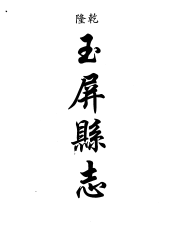 隆乾
玉屏縣志